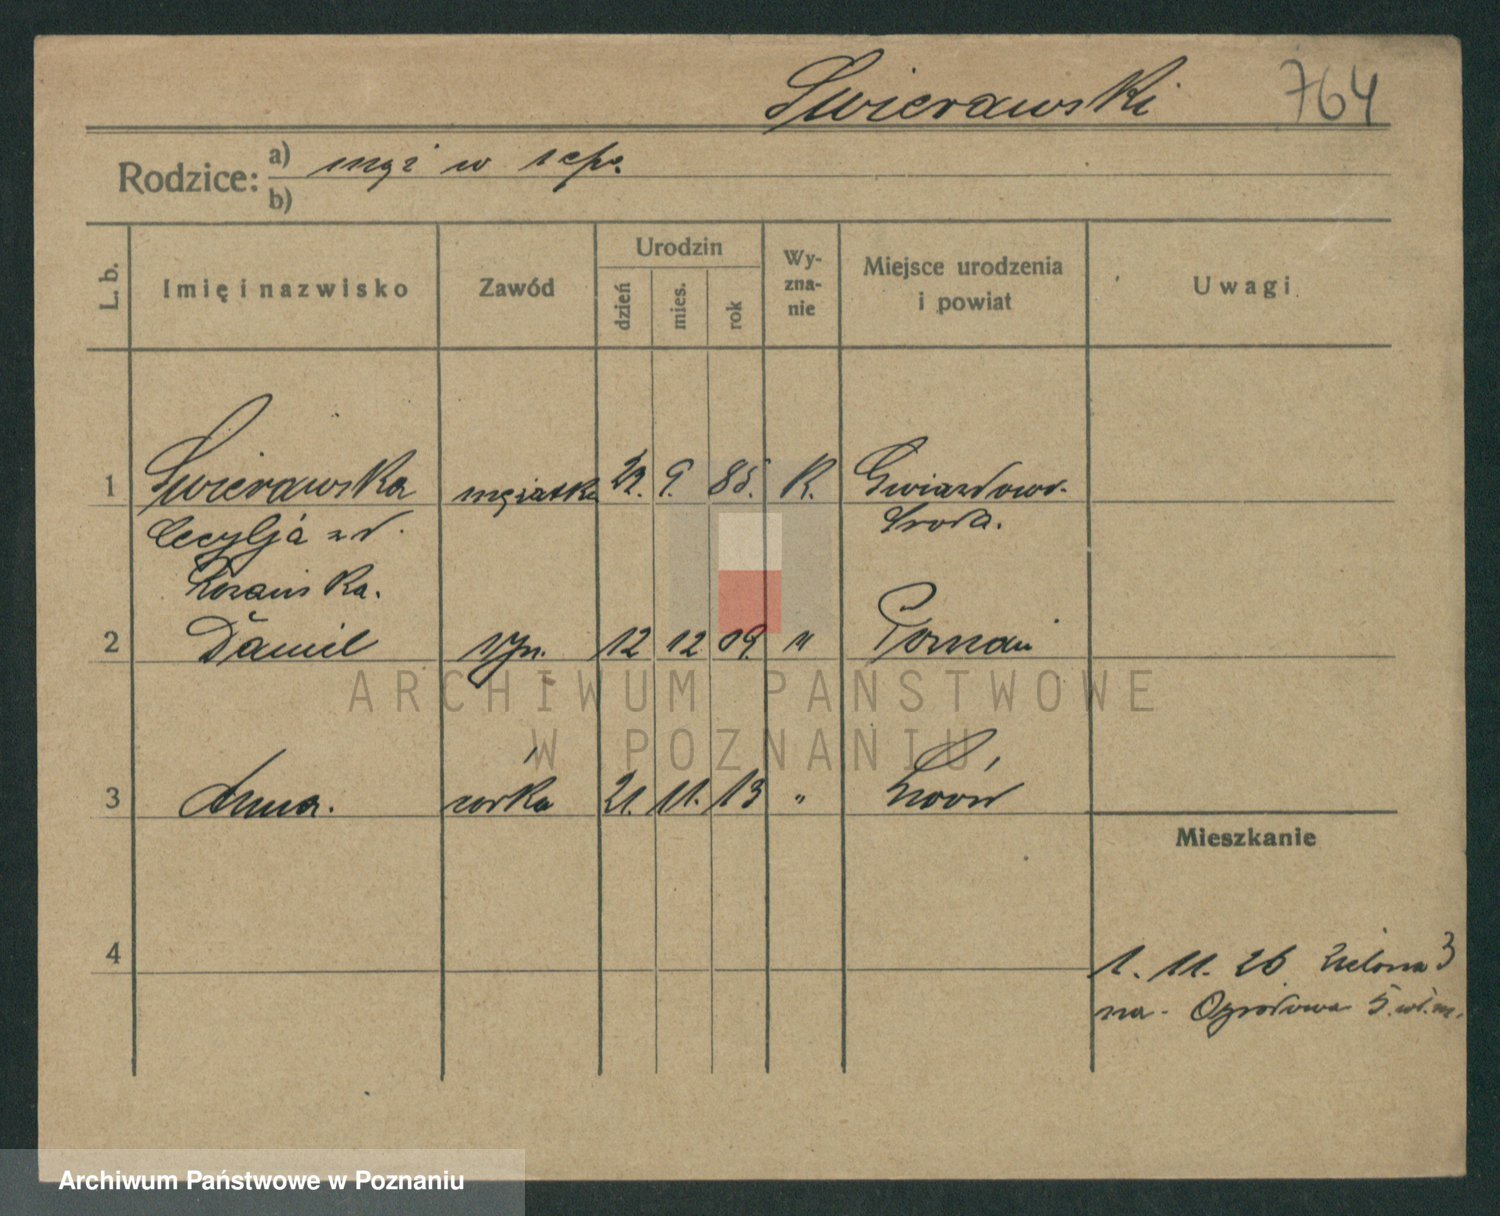 Swierawski 764
Rodzice: a) mąż w sepa.
b)
L. b. Imię i nazwisko Zawód Urodzin dzień mies. rok Wyznanie Miejsce urodzenia i powiat Uwagi
1 Swierawska mężatka 22. 9. 85. R. Gwiazdowo.
Cecylja z d. Środa.
2 Daniel syn. 12 12 09. " Poznań
ARCHIWUM PAŃSTWOWE
W POZNANIU
3 Anna. córka 21. 11. 13 " Lwów
Mieszkanie
4
1. 11. 26 Zielona 3
na - Ogrodowa 5.
Archiwum Państwowe w Poznaniu